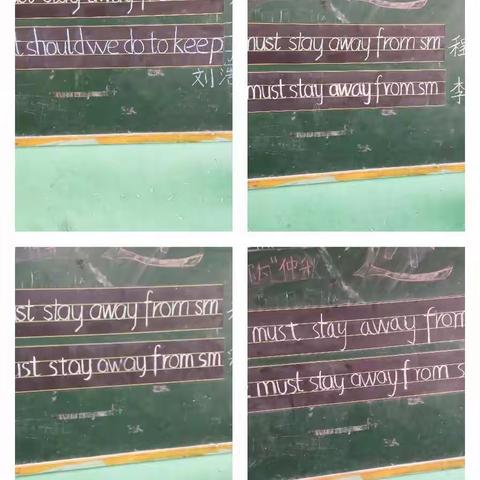 should we do to keep
刘浩
must stay away from sm
程
must stay away from sm
李
st stay away from sm
ust stay away from sm
仲
must stay away from
must stay away from s